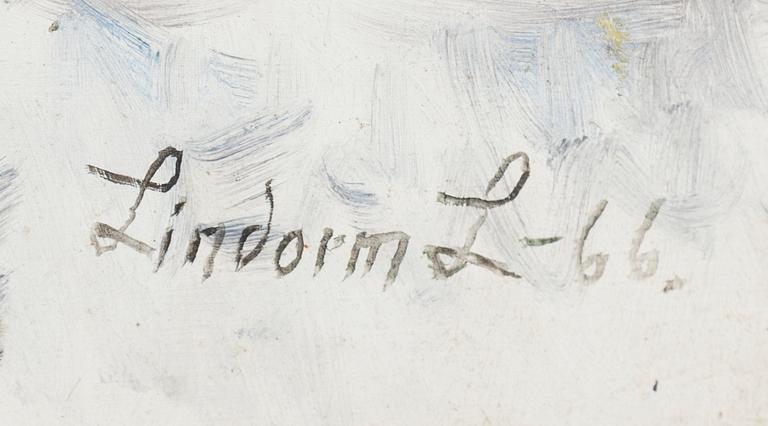 Lindorm L-66.